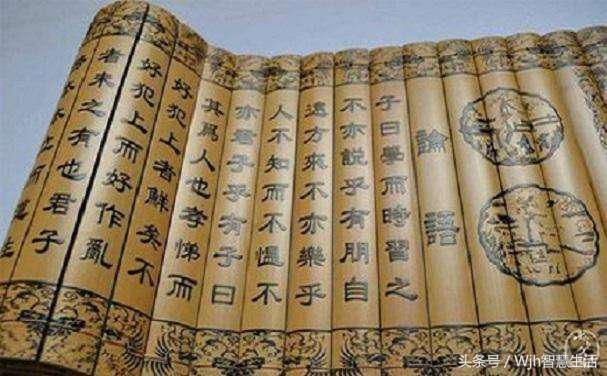 論語
子曰學而時習之
不亦說乎有朋自
遠方來不亦樂乎
人不知而不慍不
亦君子乎有子曰
其爲人也孝悌而
好犯上者鮮矣不
好犯上而好作亂
者未之有也君子
头条号 / Wjh智慧生活